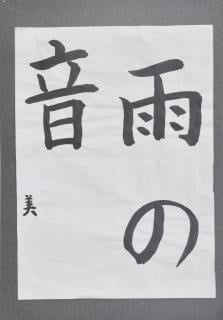 雨の
音
美